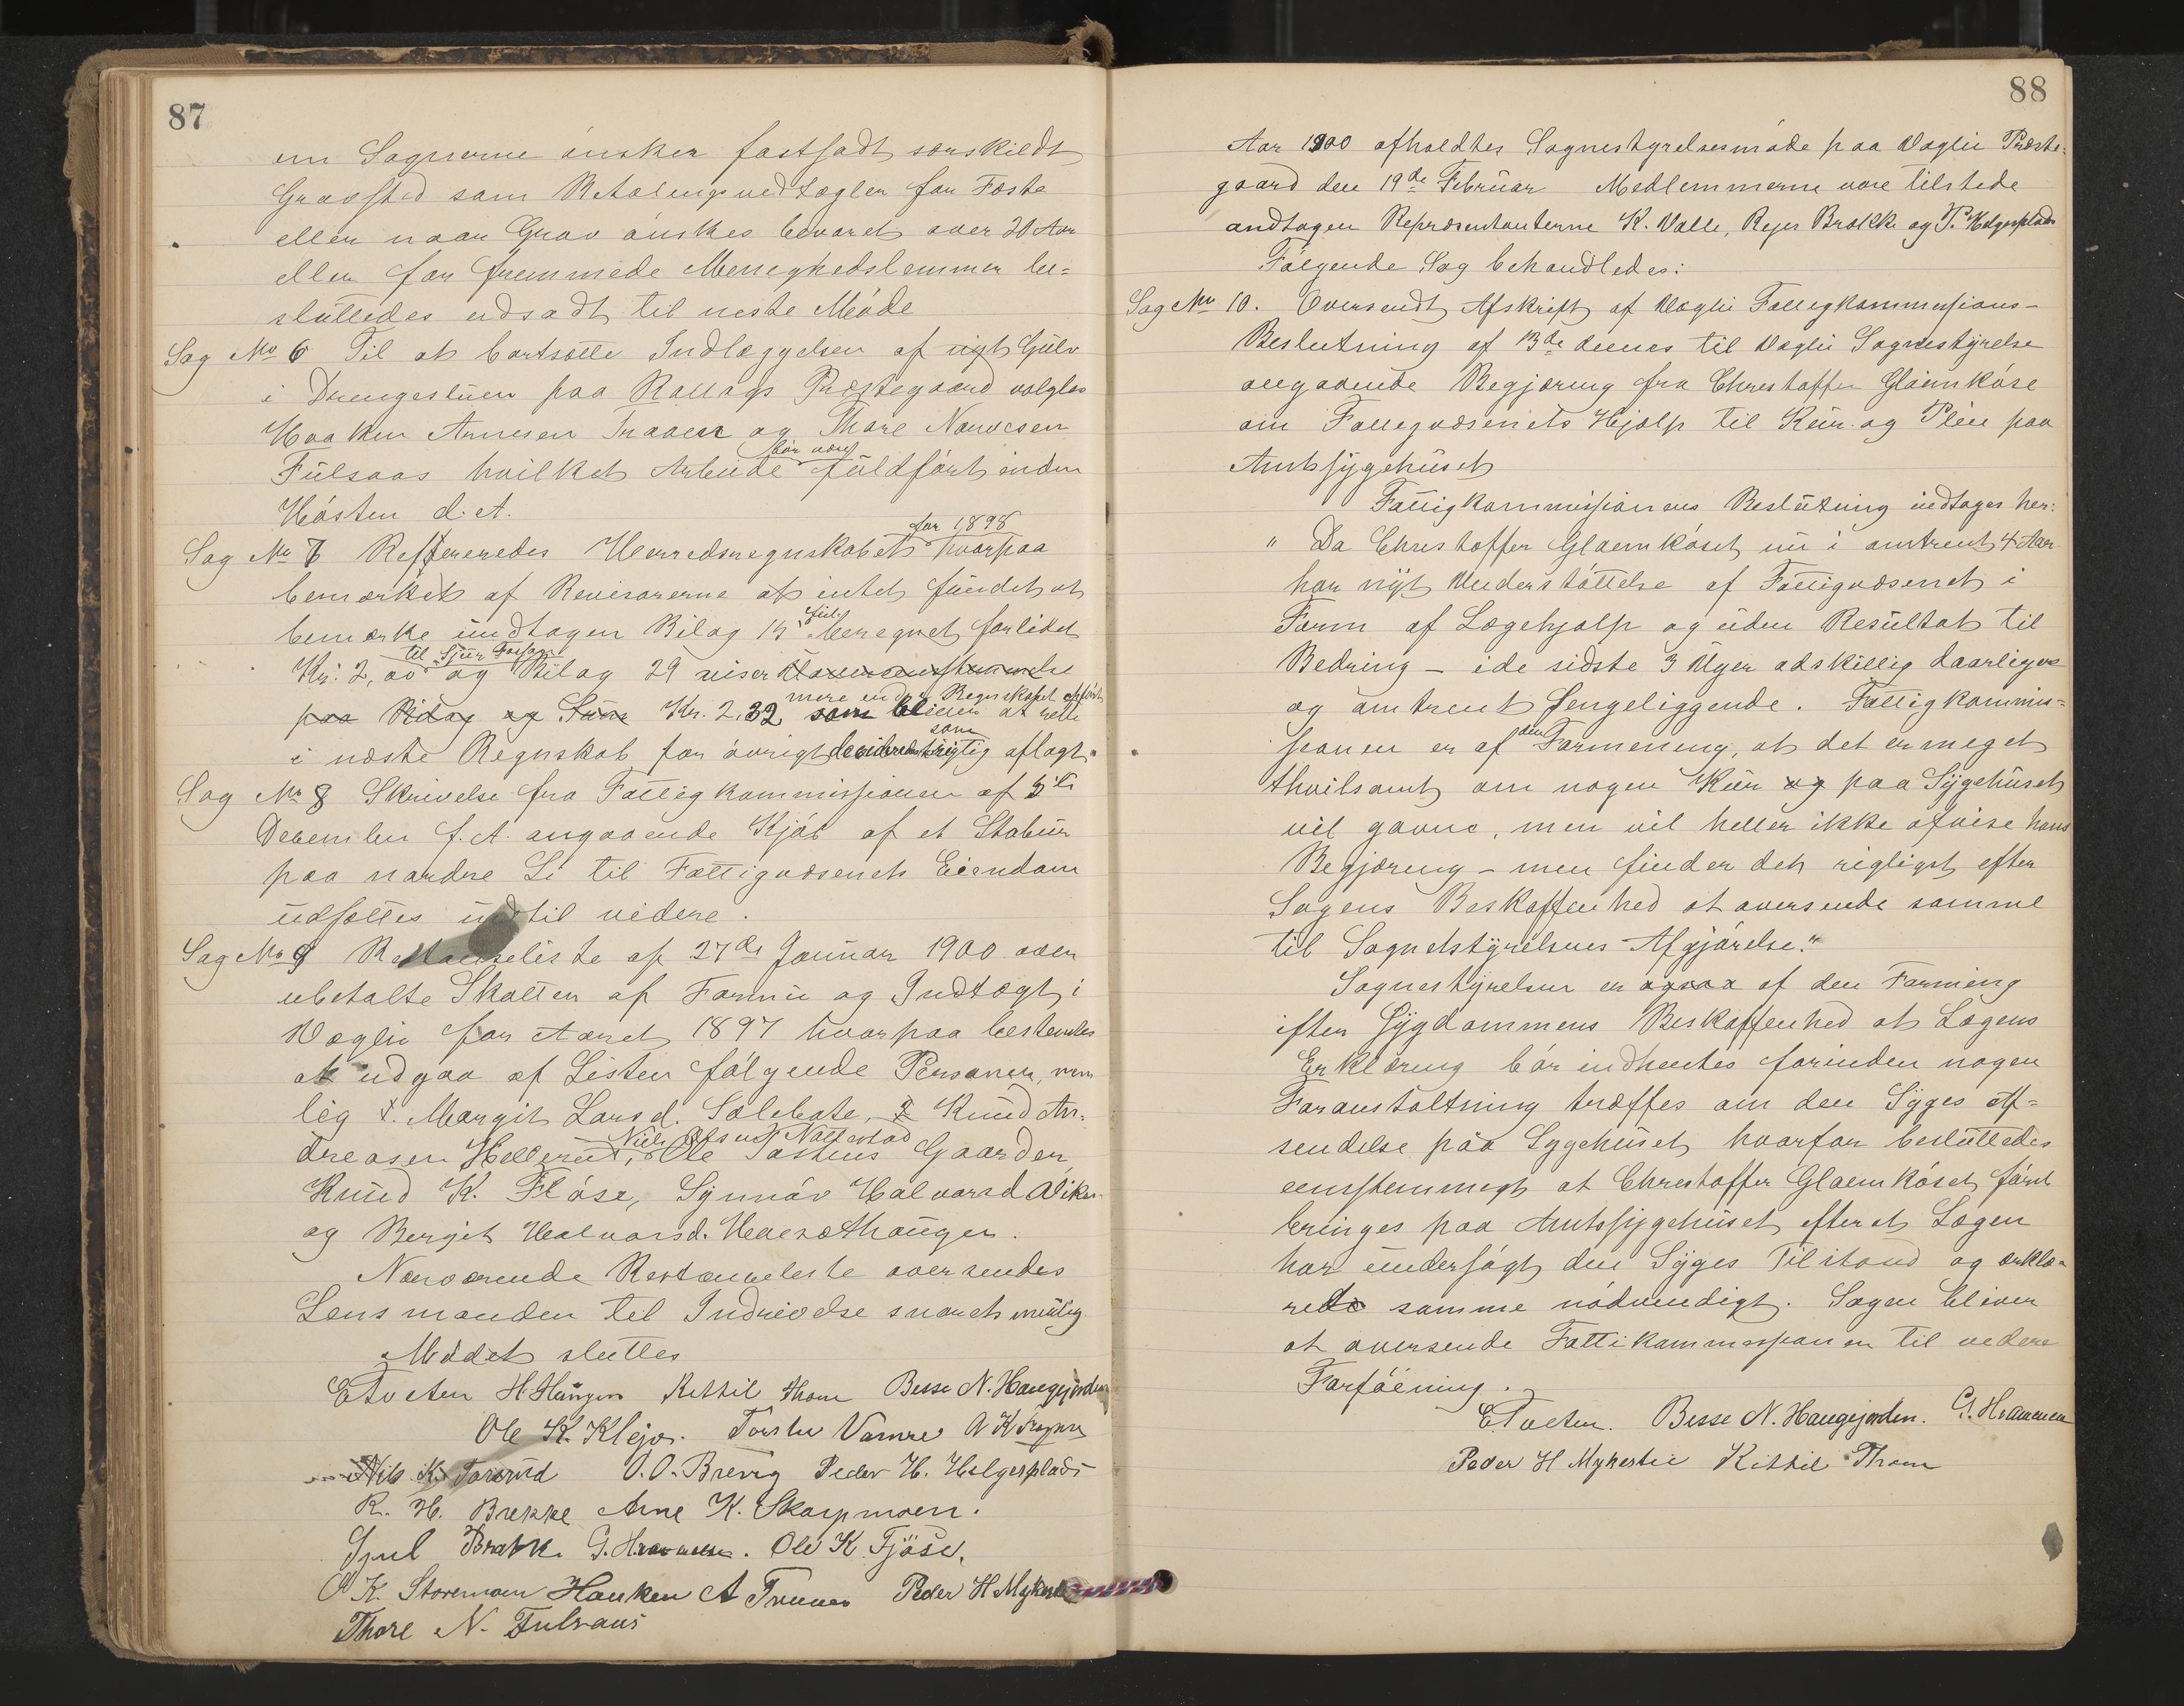 87
om Sognerne ønsker fastsadt særskildt
Gravsted som Betalingsvedtægter for Fæste
eller naar Grav ønskes bevaret over 20 Aar
eller for fremmede Menighedslemmer be-
sluttedes udsadt til neste Møde
Sag No 6 Til at bortsætte Indlæggelsen af nyt Gulv
i Drengestuen paa Rollags Præstegaard valgtes
Haaken Arnesen Traaen og Thore
Fulsaas hvilket Arbeide bør være fuldført inden
Høsten d. A.
Sag No 7 Refereredes Herredsregnskabet for 1898 hvorpaa
bemærket af Revisorerne at intet fundet at
bemærke undtagen Bilag 15 beregnet forlidet
Kr. 2,00 og Bilag 29 viser
paa Bilag og Sum Kr. 2,32 mere end i Regnskabet opført
som bliver at rette
i næste Regnskab for øvrigt som rigtig aflagt.
Sag No 8 Skrivelse fra Fattigkommissionen af 5te
December f. A. angaaende Kjøb af et Stabur
paa nordre Li til Fattigvæsenets Eiendom
udsættes indtil videre.
Sag No 9 Restanseliste af 27de Januar 1900 over
ubetalte Skatter af Formue og Indtægt i
Veglie for Aaret 1897 hvorpaa bestemtes
at udgaa af Listen følgende Personer, nem
lig 1. Margit Larsd. Solebøte, 2 Knud An-
dreasen Hellerud, Niels Olsen Nattestad Ole Gaarden
Knud K. Fløse, Synnøv Halvorsd
og Bergit Halvorsd.
Nærværende Restanseliste oversendes
Lensmanden til Indrivelse snarets mulig
Mødet sluttes
E Tveten H. Haugen Kittil Thom Besse N. Haugejorden
Ole K. Klejo. Torsten Vamre
Nils K. Torsrud O. O. Brevig Peder H. Helgesplads
R. H. Brekke Arne K. Skarpmoen.
G. Hrammen. Ole K Fjøse.
K. Storemoen Haaken A Traaen Peder H Mykest
Thore N. Fulsaas
88
Aar 1900 afholdtes Sognestyrelsesmøde paa Veglie Præste-
gaard den 19de Februar Medlemmerne vare tilstede
undtagen Repræsentanterne K. Valle, Rejer Brække og P. Helgesplads
Følgende Sag behandledes:
Sag No 10. Oversendt Afskrift af Veglie Fattigkommisions-
Beslutning af 13de dennes til Veglie Sognestyrelse
angaaende Begjæring fra Christoffer Glaimkøse
om Fattigvæsenets Hjælp til Kur og Pleie paa
Amtssygehuset
Fattigkommissionens Beslutning indtages her:
" Da Christoffer Glaimkøset nu i omtrent 4 Aar
har nyt Understøttelse af Fattigvæsenet i
Form af Lægehjælp og uden Resultat til
Bedring – i de sidste 3 Uger adskillig daarligere
og omtrent sengeliggende. Fattigkommis-
sionen er af den Formening, at det er meget
tvilsomt om nogen Kur og paa Sygehuset
vil gavne, men vil heller ikke afvise hans
Begjæring – men finder det rigligst efter
Sagens Beskaffenhed at oversende samme
til Sognestyrelsens Afgjørelse."
Sognestyrelsen er ogsaa af den Forming
efter Sygdommens Beskaffenhed at Lægens
Erklæring bør indhentes forinden nogen
Foranstaltning træffes om den Syges Af-
sendelse paa Sygehuset hvorfor besluttedes
eenstemmigt at Christoffer Glaimkøset først
bringes paa Amtssygehuset efterat Lægen
har undersøgt den Syges Tilstand og erklæ-
rede samme nødvendigt. Sagen bliver
at oversende Fattikommissionen til videre
Forføining.
E. Tveten. Besse N. Haugejorden. G. Hrammen
Peder H Mykestue Kittil Thom